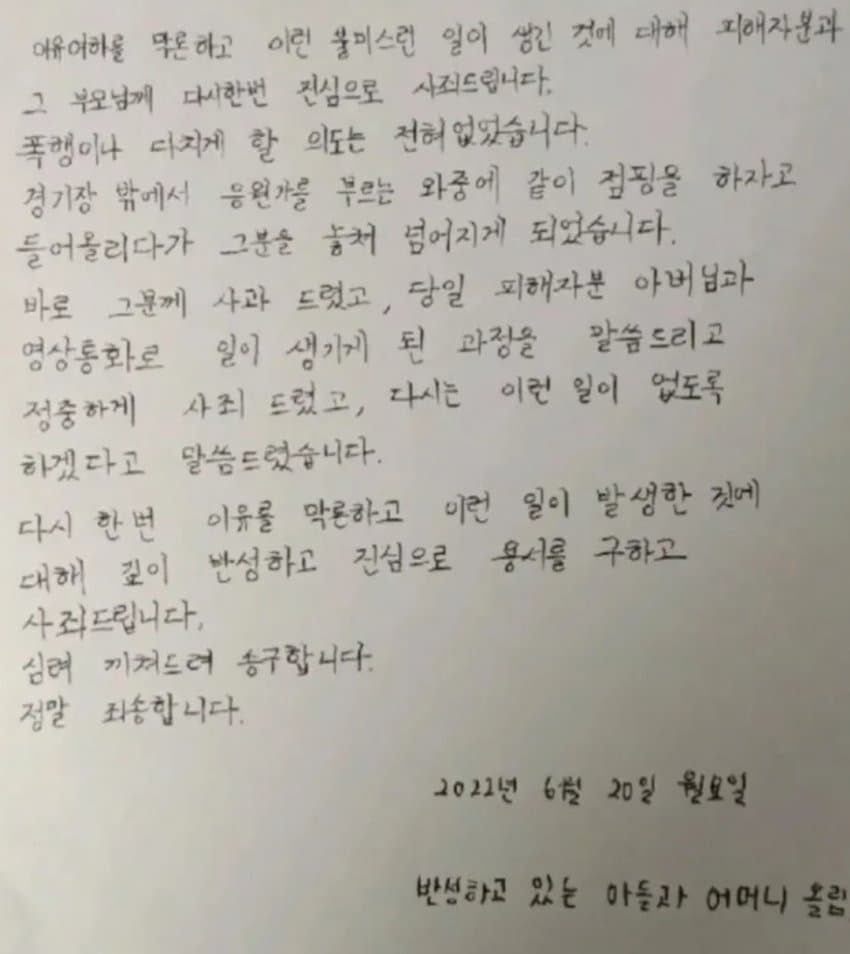 이유여하를 막론하고 이런 불미스런 일이 생긴 것에 대해 피해자분과
그 부모님께 다시한번 진심으로 사죄드립니다.
폭행이나 다치게 할 의도는 전혀없었습니다.
경기장 밖에서 응원가를 부르는 와중에 같이 점핑을 하자고
들어올리다가 그분을 놓쳐 넘어지게 되었습니다.
바로 그분께 사과 드렸고, 당일 피해자분 아버님과
영상통화로 일이 생기게 된 과정을 말씀드리고
정중하게 사죄 드렸고, 다시는 이런 일이 없도록
하겠다고 말씀드렸습니다.
다시 한번 이유를 막론하고 이런 일이 발생한 것에
대해 깊이 반성하고 진심으로 용서를 구하고
사죄드립니다.
심려 끼쳐드려 송구합니다.
정말 죄송합니다.
2022년 6월 20일 월요일
반성하고 있는 아들과 어머니 올림